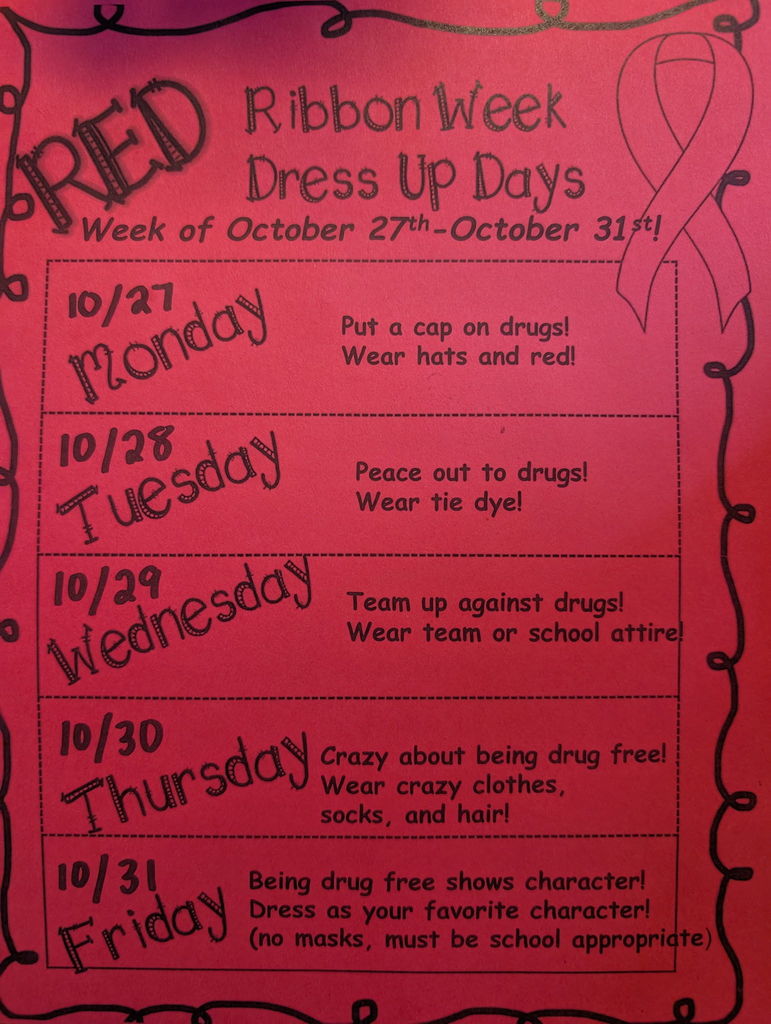 RED Ribbon Week
Dress Up Days
Week of October 27th-October 31st!
10/27
Monday
Put a cap on drugs!
Wear hats and red!
10/28
Tuesday
Peace out to drugs!
Wear tie dye!
10/29
Wednesday
Team up against drugs!
Wear team or school attire!
10/30
Thursday
Crazy about being drug free!
Wear crazy clothes,
socks, and hair!
10/31
Friday
Being drug free shows character!
Dress as your favorite character!
(no masks, must be school appropriate)